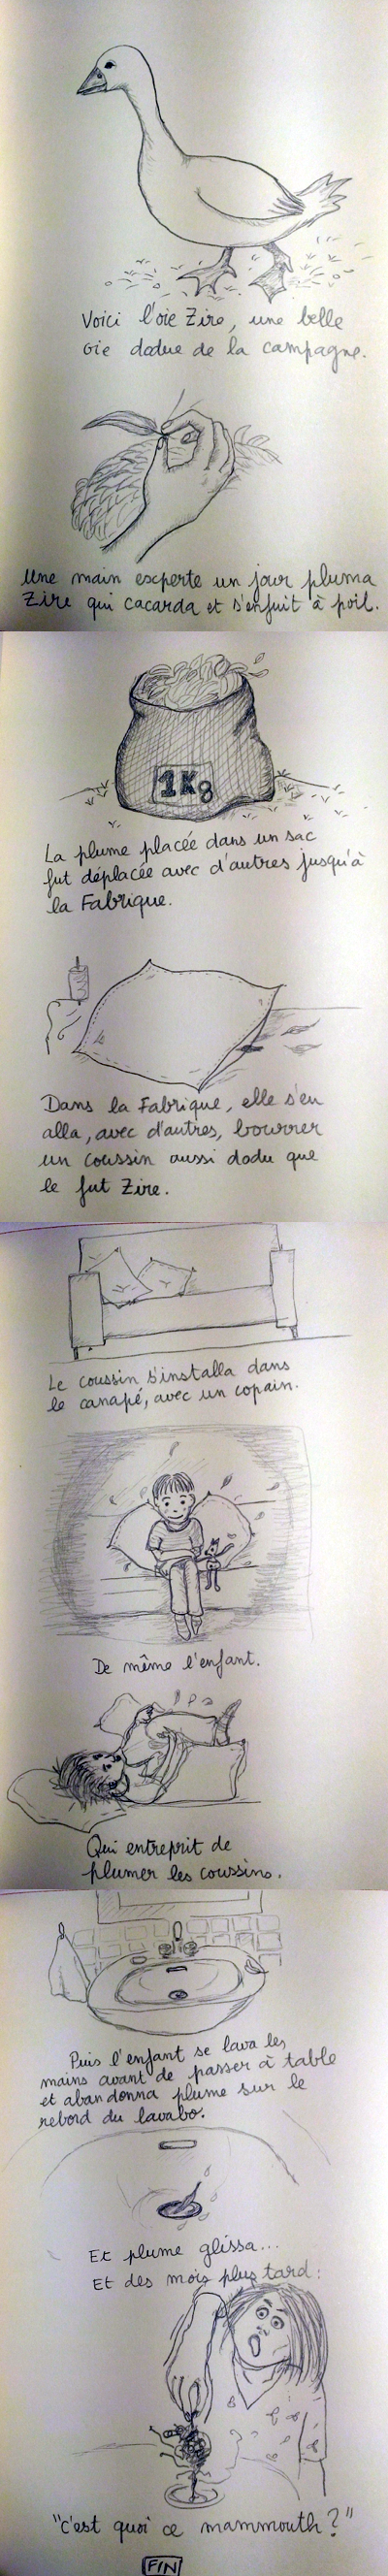 Voici l'oie Zire, une belle
oie dodue de la campagne.
Une main experte un jour pluma
Zire qui cacarda et s'enfuit à poil.
1Kg
La plume placée dans un sac
fut déplacée avec d'autres jusqu'à
la Fabrique.
Dans la Fabrique, elle s'en
alla, avec d'autres, bourrer
un coussin aussi dodu que
le fut Zire.
Le coussin s'installa dans
le canapé, avec un copain.
De même l'enfant.
Qui entreprit de
plumer les coussins.
Puis l'enfant se lava les
mains avant de passer à table
et abandonna plume sur le
rebord du lavabo.
Et plume glissa...
Et des mois plus tard :
"c'est quoi ce mammouth ?"
FIN